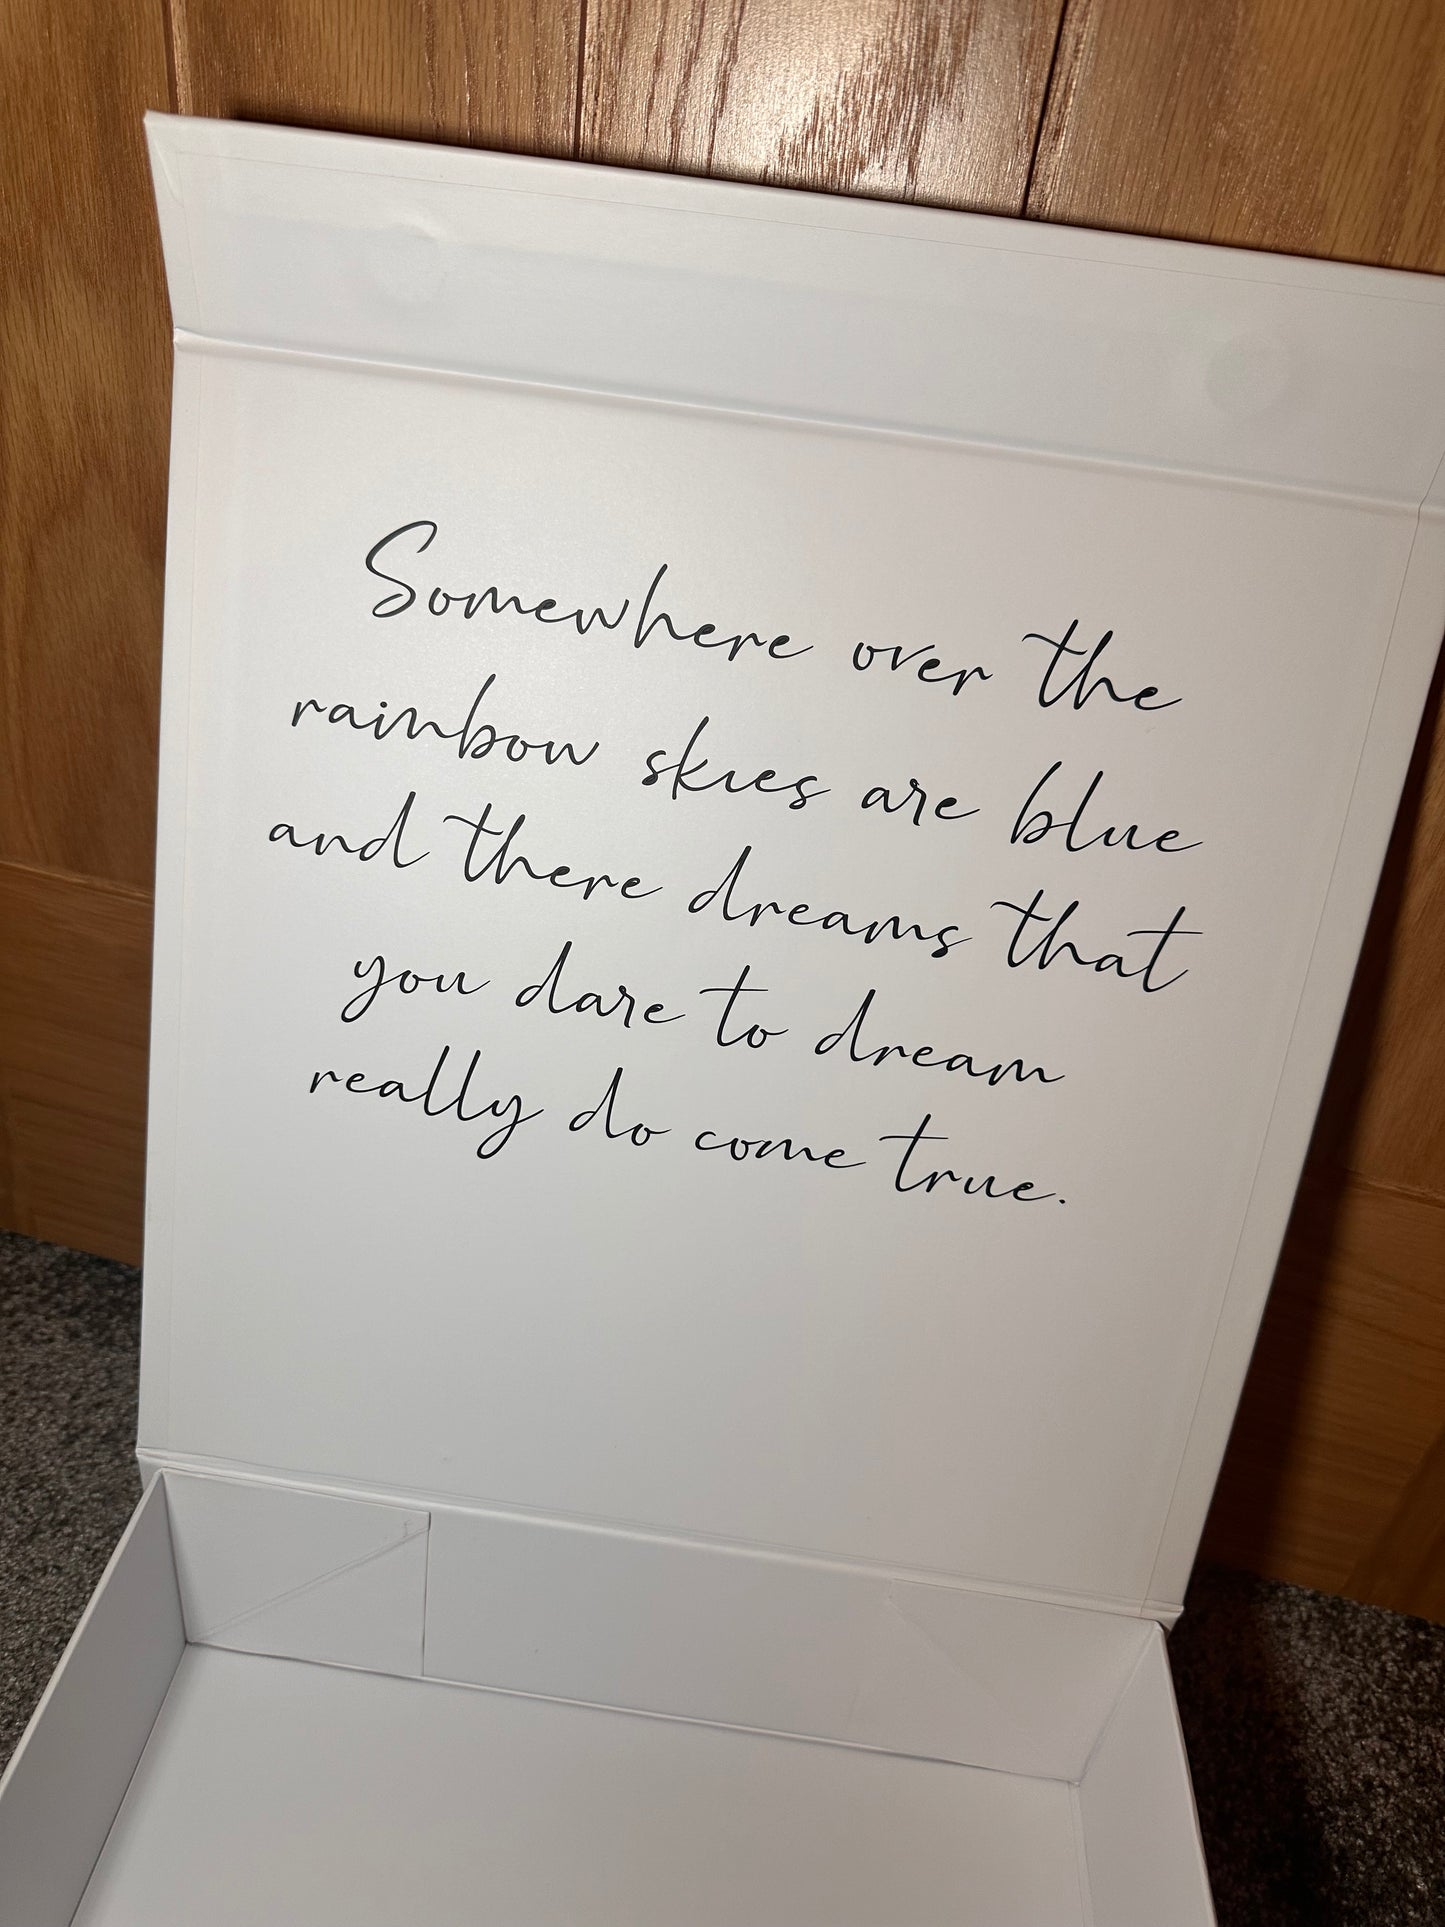 Somewhere over the
rainbow skies are blue
and there dreams that
you dare to dream
really do come true.